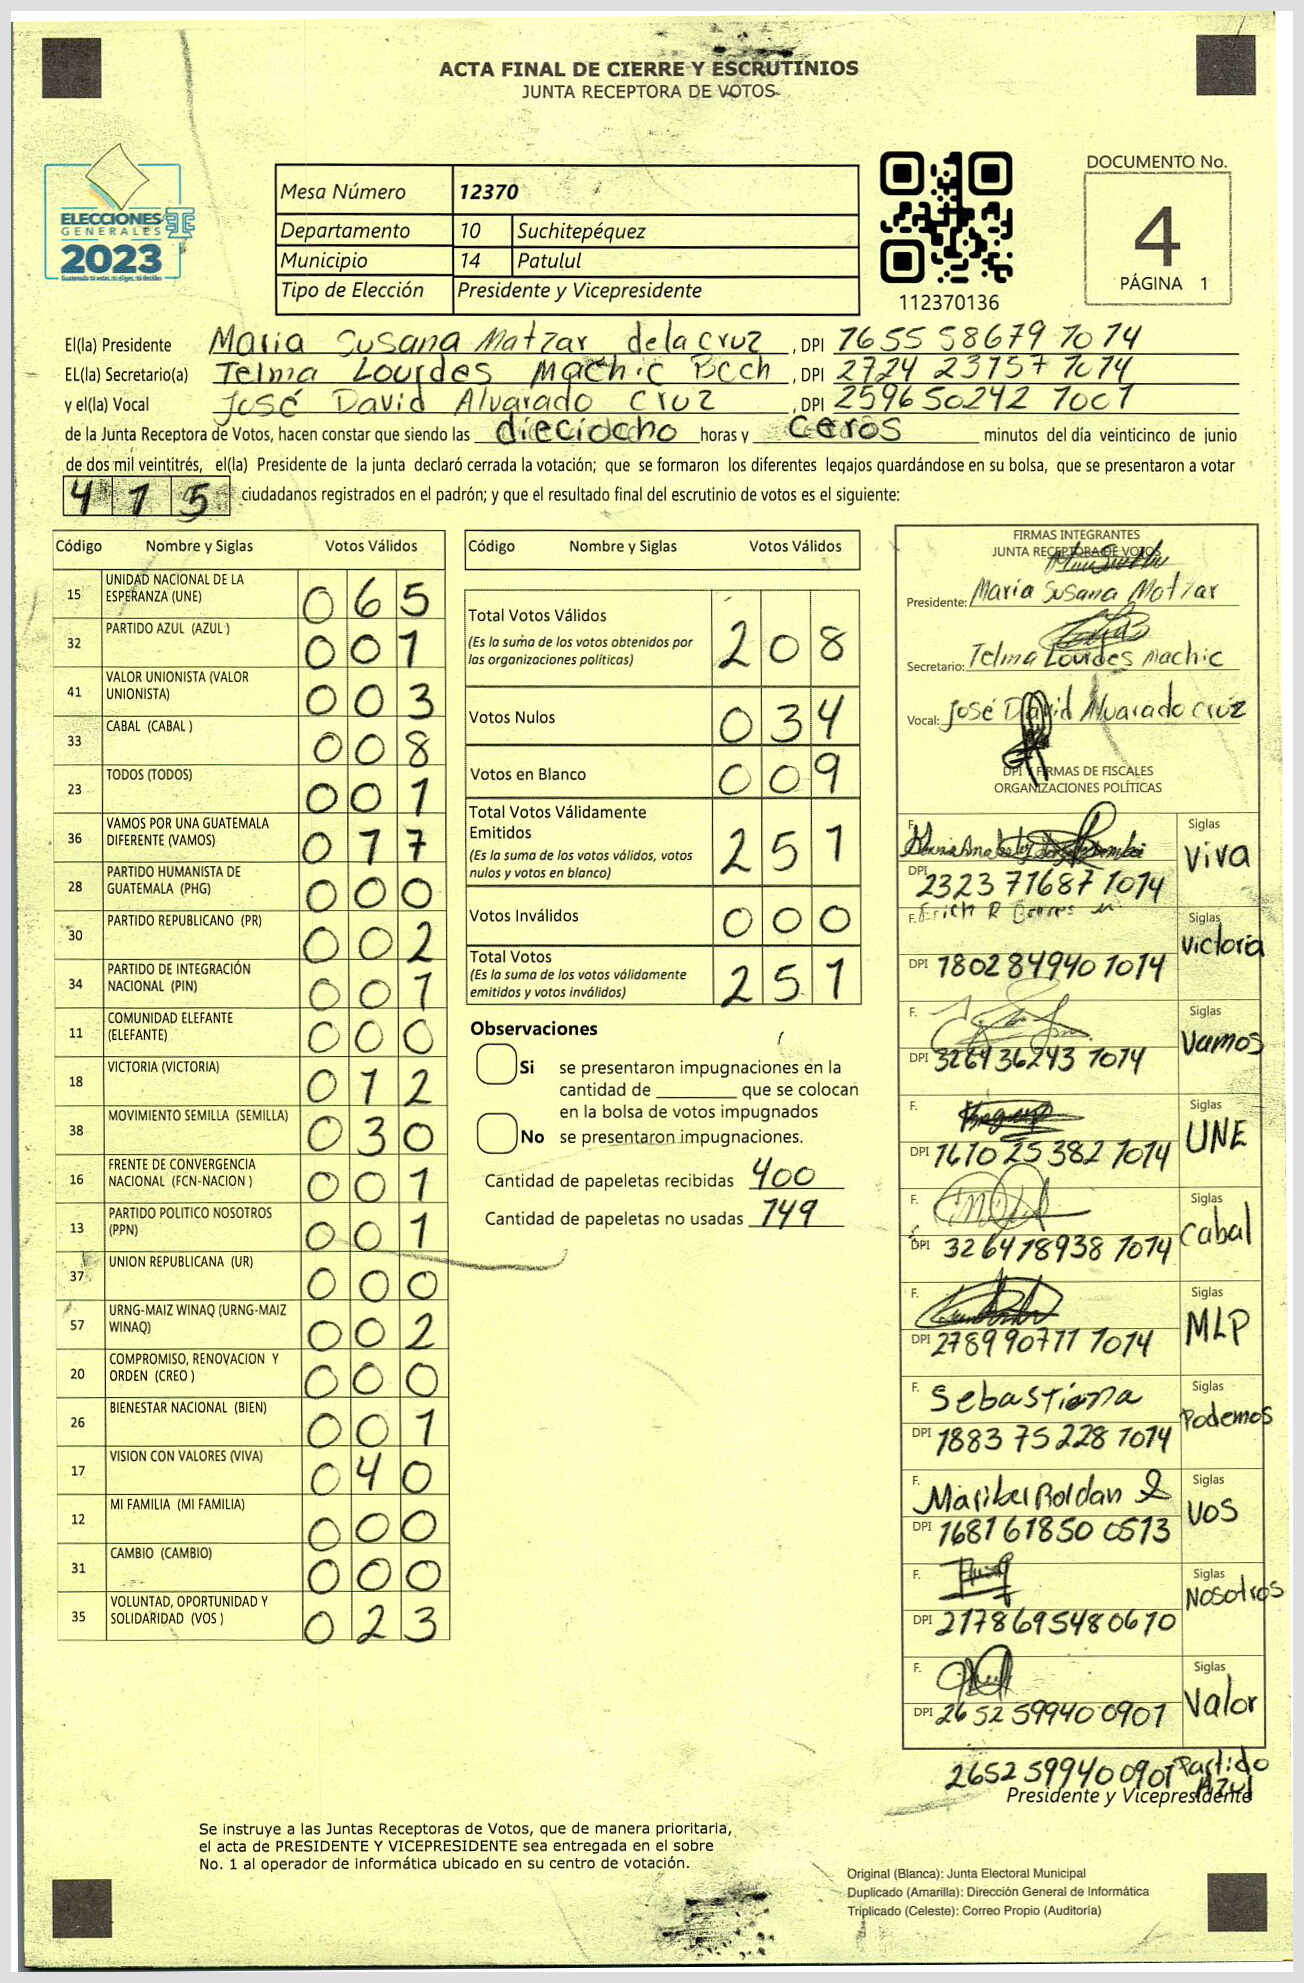 ACTA FINAL DE CIERRE Y ESCRUTINIOS
JUNTA RECEPTORA DE VOTOS
ELECCIONES
GENERALES
2023
Mesa Número 12370
Departamento 10 Suchitepéquez
Municipio 14 Patulul
Tipo de Elección Presidente y Vicepresidente
112370136
DOCUMENTO No.
4
PÁGINA 1
El(la) Presidente Maria Susana Matzar dela cruz, DPI 1655 58679 1014
EL(la) Secretario(a) Telma Lourdes Machic, DPI 2724 23157 1014
y el(la) Vocal José David Alvarado Cruz, DPI 2596 50242 1001
de la Junta Receptora de Votos, hacen constar que siendo las dieciocho horas y ceros minutos del día veinticinco de junio
de dos mil veintitrés, el(la) Presidente de la junta declaró cerrada la votación; que se formaron los diferentes legajos guardándose en su bolsa, que se presentaron a votar
415 ciudadanos registrados en el padrón; y que el resultado final del escrutinio de votos es el siguiente:
Código Nombre y Siglas Votos Válidos
15 UNIDAD NACIONAL DE LA ESPERANZA (UNE) 065
32 PARTIDO AZUL (AZUL ) 001
41 VALOR UNIONISTA (VALOR UNIONISTA) 003
33 CABAL (CABAL ) 008
23 TODOS (TODOS) 001
36 VAMOS POR UNA GUATEMALA DIFERENTE (VAMOS) 017
28 PARTIDO HUMANISTA DE GUATEMALA (PHG) 000
30 PARTIDO REPUBLICANO (PR) 002
34 PARTIDO DE INTEGRACIÓN NACIONAL (PIN) 001
11 COMUNIDAD ELEFANTE (ELEFANTE) 000
18 VICTORIA (VICTORIA) 012
38 MOVIMIENTO SEMILLA (SEMILLA) 030
16 FRENTE DE CONVERGENCIA NACIONAL (FCN-NACION ) 001
13 PARTIDO POLITICO NOSOTROS (PPN) 001
37 UNION REPUBLICANA (UR) 000
57 URNG-MAIZ WINAQ (URNG-MAIZ WINAQ) 002
20 COMPROMISO, RENOVACION Y ORDEN (CREO ) 000
26 BIENESTAR NACIONAL (BIEN) 001
17 VISION CON VALORES (VIVA) 040
12 MI FAMILIA (MI FAMILIA) 000
31 CAMBIO (CAMBIO) 000
35 VOLUNTAD, OPORTUNIDAD Y SOLIDARIDAD (VOS ) 023
Código Nombre y Siglas Votos Válidos
Total Votos Válidos 208
(Es la suma de los votos obtenidos por
las organizaciones políticas)
Votos Nulos 034
Votos en Blanco 009
Total Votos Válidamente
Emitidos 251
(Es la suma de los votos válidos, votos
nulos y votos en blanco)
Votos Inválidos 000
Total Votos 251
(Es la suma de los votos válidamente
emitidos y votos inválidos)
Observaciones
Si se presentaron impugnaciones en la
cantidad de ________ que se colocan
en la bolsa de votos impugnados
No se presentaron impugnaciones.
Cantidad de papeletas recibidas 400
Cantidad de papeletas no usadas 149
FIRMAS INTEGRANTES
JUNTA RECEPTORA DE VOTOS
Presidente: Maria Susana Matzar
Secretario: Telma Lourdes Machic
Vocal: José David Alvarado cruz
DPI Y FIRMAS DE FISCALES
ORGANIZACIONES POLÍTICAS
F. Siglas Viva
DPI 2323 71687 1014
F. Erich R Siglas Victoria
DPI 1802 84940 1014
F. Siglas Vamos
DPI 3264 36243 1014
F. Siglas UNE
DPI 1610 25382 1014
F. Siglas Cabal
DPI 3264 18938 1014
F. Siglas MLP
DPI 2789 90711 1014
F. Sebastiana Siglas Podemos
DPI 1883 75228 1014
F. Maribel Roldan Siglas VOS
DPI 1681 61850 0513
F. Siglas Nosotros
DPI 2178 69548 0610
F. Siglas Valor
DPI 2652 59940 0901
2652 59940 0901 Partido Azul
Presidente y Vicepresidente
Se instruye a las Juntas Receptoras de Votos, que de manera prioritaria,
el acta de PRESIDENTE Y VICEPRESIDENTE sea entregada en el sobre
No. 1 al operador de informática ubicado en su centro de votación.
Original (Blanca): Junta Electoral Municipal
Duplicado (Amarilla): Dirección General de Informática
Triplicado (Celeste): Correo Propio (Auditoría)